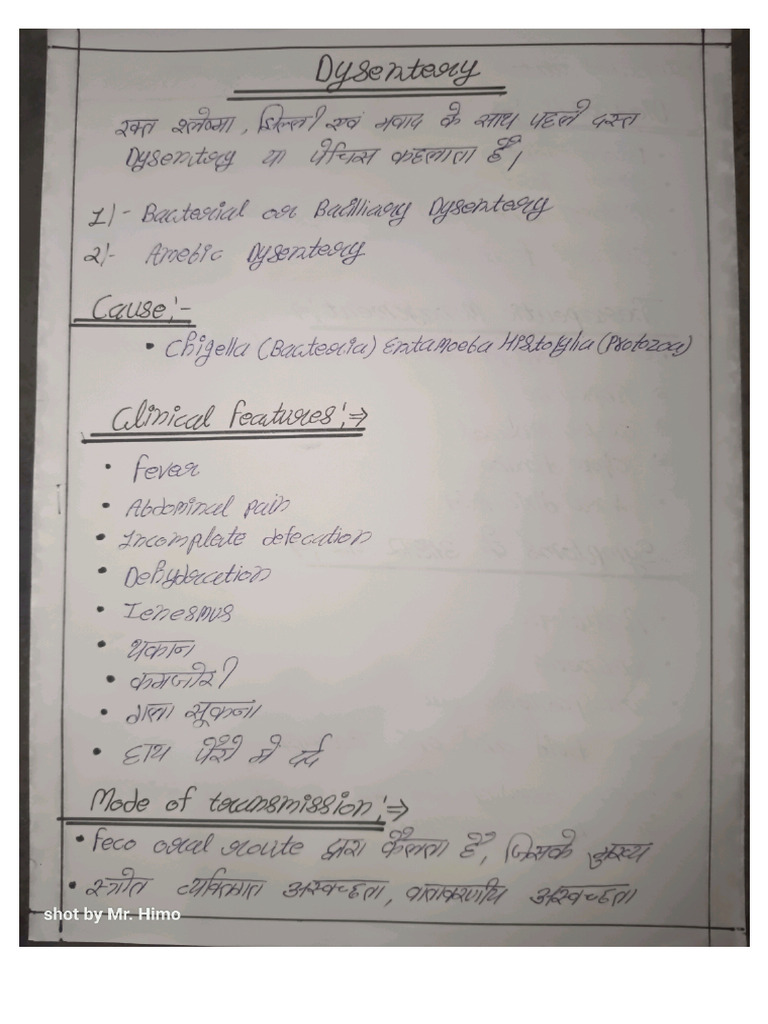 Dysentery
रक्त श्लेष्मा, झिल्ली एवं मवाद के साथ पतले दस्त
Dysentery या पेचिस कहलाता है।
1)- Bacterial or Bacilliary Dysentery
2)- Amebic Dysentery
Cause:-
• Chigella (Bacteria) Entamoeba Histolylia (Protozoa)
Clinical features:⇒
• Fever
• Abdominal pain
• Incomplate defecation
• Dehydration
• Tenesmus
• थकान
• कमजोरी
• गला सूकना
• हाथ पैरो मे दर्द
Mode of transmission:⇒
• Feco oral route द्वारा फैलता है, जिसके मुख्य
• स्त्रोत व्यक्तिगत अस्वच्छता, वातावरणीय अस्वच्छता
shot by Mr. Himo